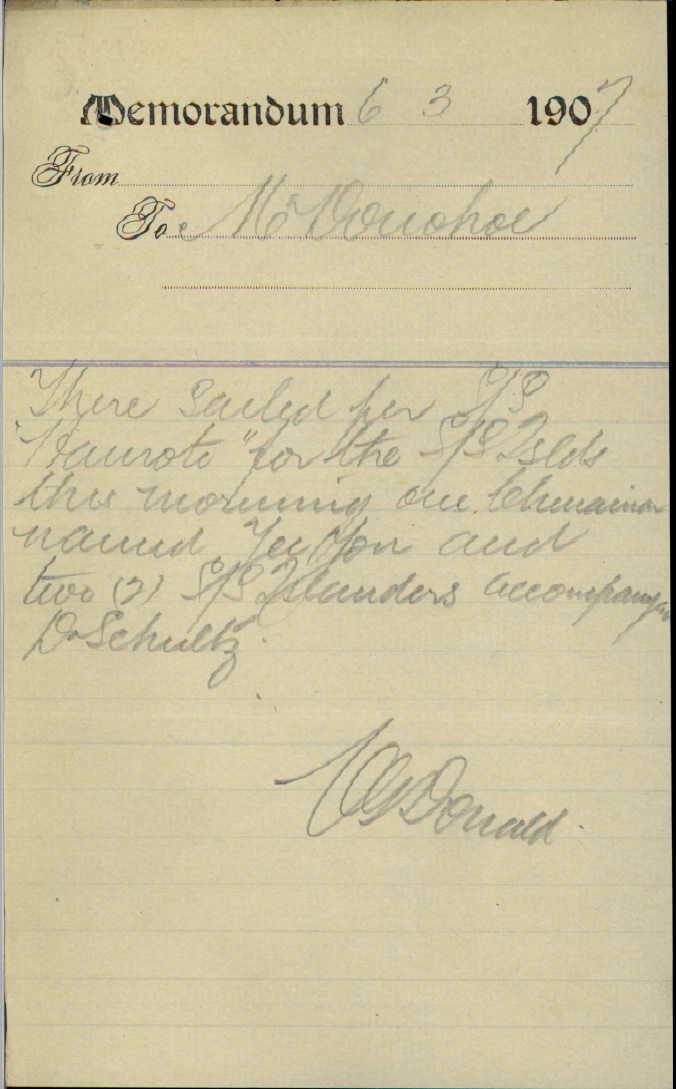 Memorandum 6 3 1907
From
To Mr Donohoe
There sailed per S/S
"Hauroto" for the S/S Islds
this morning one Chinaman
named Yee Hon and
two (2) S/S Islanders accompanying
Dr Schultz.
McDonald.